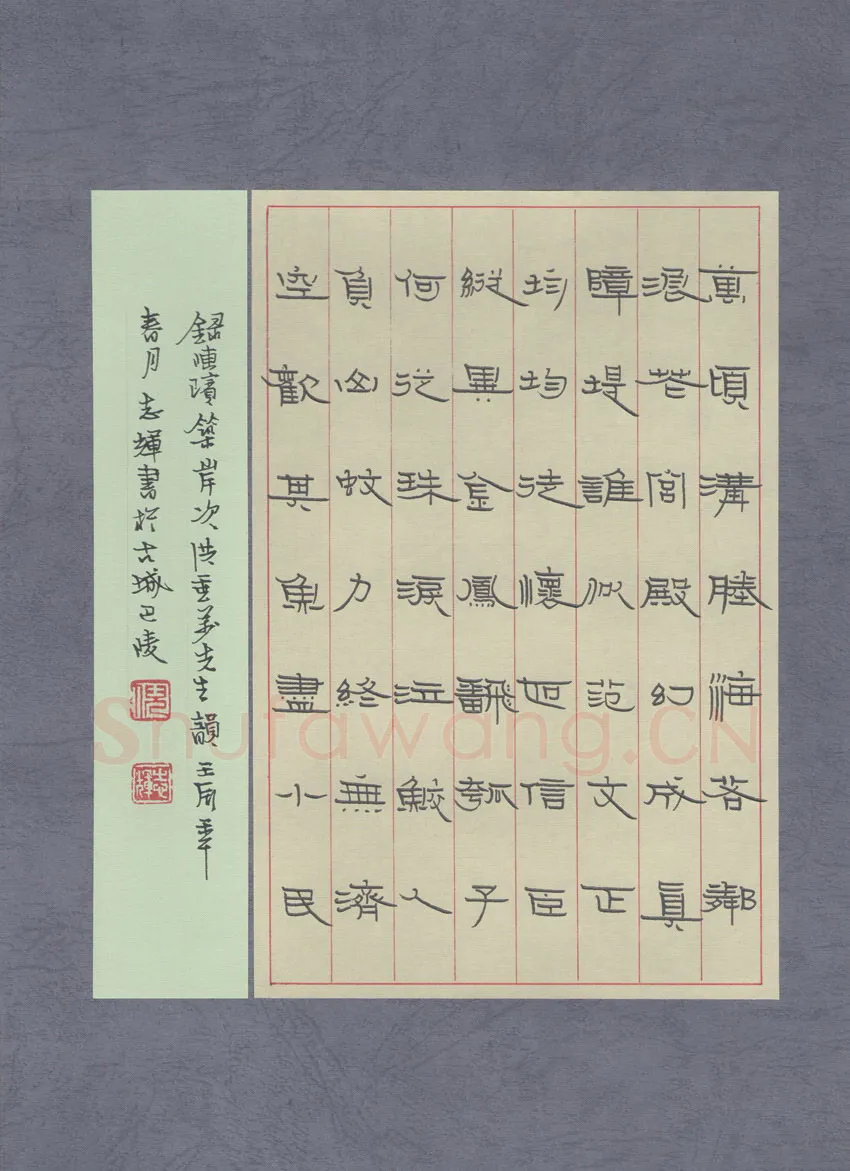 萬頃溝塍海若鄰
浪花宮殿幻成真
障堤誰似范文正
均均徒懷信臣
縱異金鳳翻瓠子
何從珠淚泣鮫人
負山蚊力終無濟
空歎其魚盡小民
錄陳瓚築岸次洪垂萬先生韻 壬辰年
春月志輝書於古城巴陵
志輝
Shufawang.CN